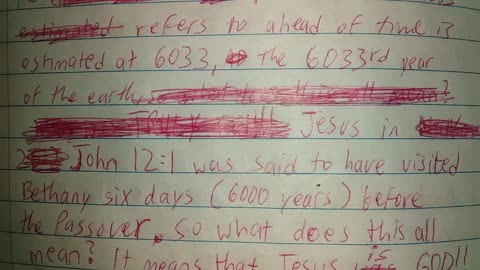 refers to ahead of time is
estimated at 6033, the 6033rd year
of the earth
Jesus in
John 12:1 was said to have visited
Bethany six days (6000 years) before
the Passover, so what does this all
mean? It means that Jesus is GOD!!